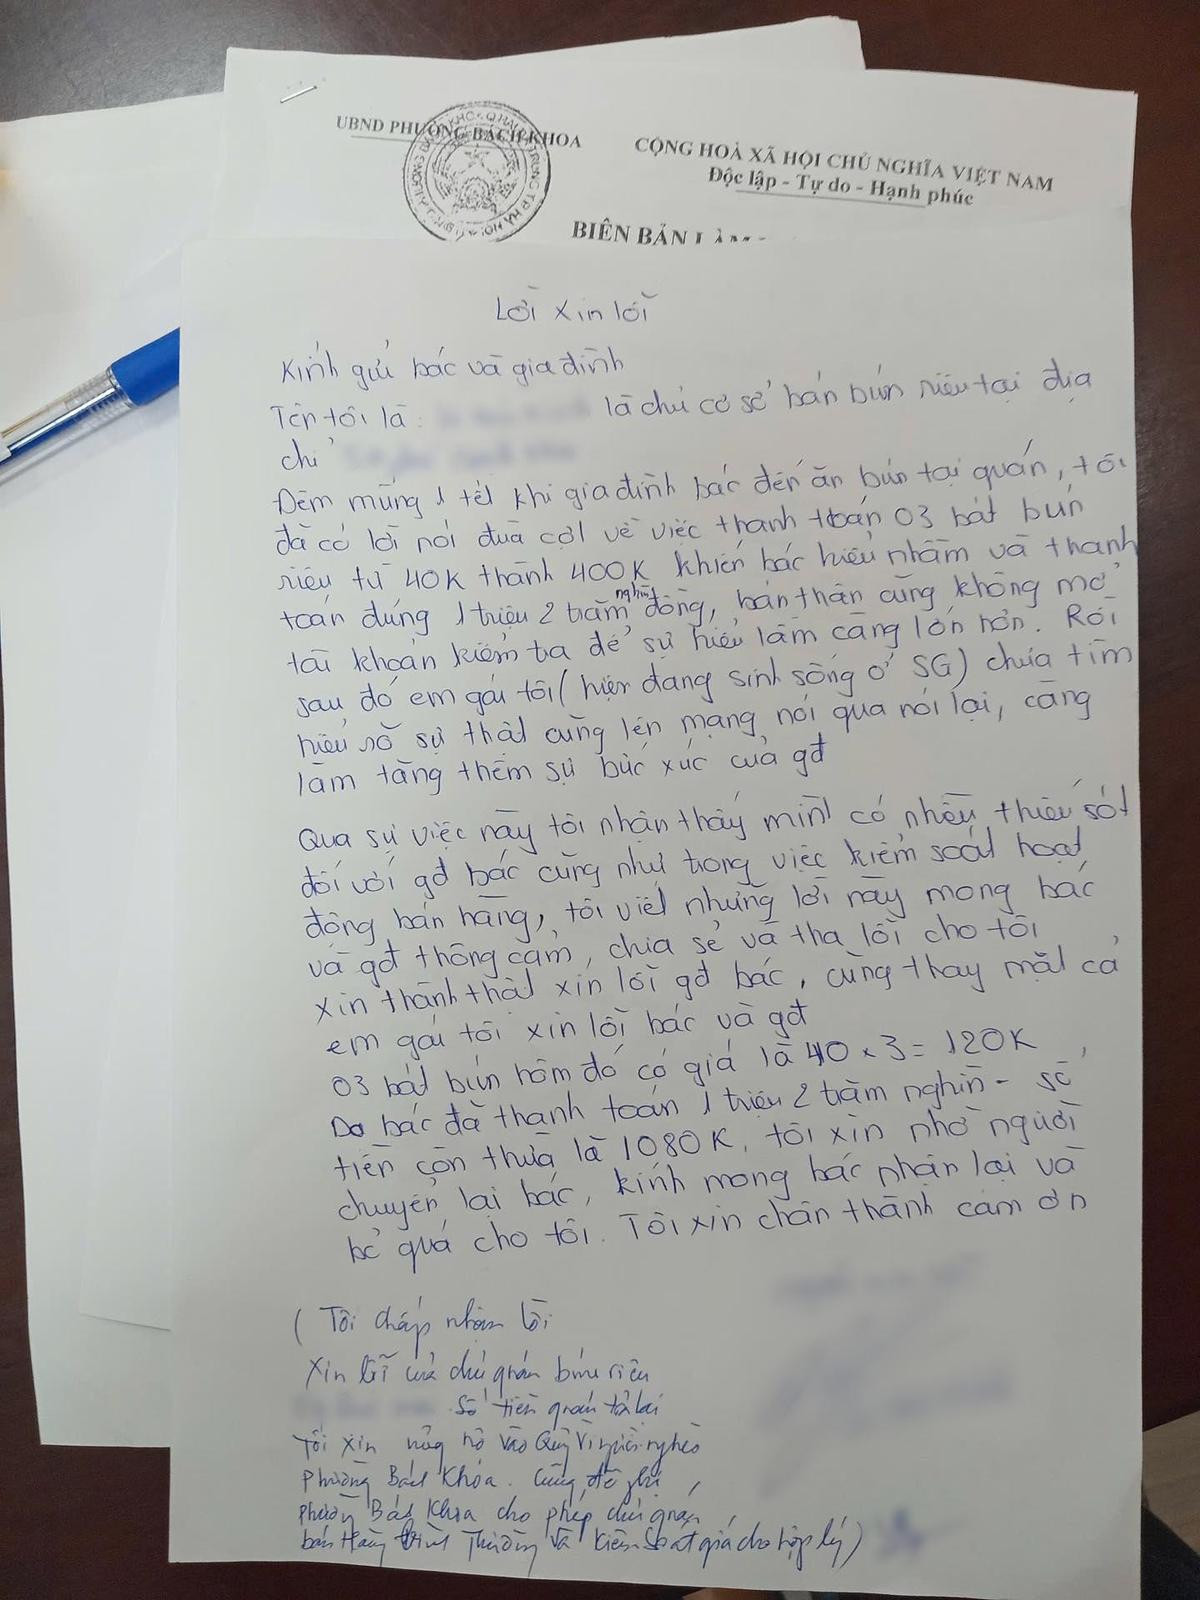 UBND PHƯỜNG BÁCH KHOA
CỘNG HOÀ XÃ HỘI CHỦ NGHĨA VIỆT NAM
Độc lập - Tự do - Hạnh phúc
BIÊN BẢN LÀM
Lời xin lỗi
Kính gửi bác và gia đình
Tên tôi là: là chủ cơ sở bán bún riêu tại địa
chỉ
Đêm mùng 1 tết khi gia đình bác đến ăn bún tại quán, tôi
đã có lời nói đùa cợt về việc thanh toán 03 bát bún
riêu từ 40K thành 400K khiến bác hiểu nhầm và thanh
toán đúng 1 triệu 2 trăm nghìn đồng, bản thân cũng không mở
tài khoản kiểm tra để sự hiểu lầm càng lớn hơn. Rồi
sau đó em gái tôi (hiện đang sinh sống ở SG) chưa tìm
hiểu rõ sự thật cũng lên mạng nói qua nói lại, càng
làm tăng thêm sự bức xúc của gđ
Qua sự việc này tôi nhận thấy mình có nhiều thiếu sót
đối với gđ bác cũng như trong việc kiểm soát hoạt
động bán hàng, tôi viết những lời này mong bác
và gđ thông cảm, chia sẻ và tha lỗi cho tôi
xin thành thật xin lỗi gđ bác, cũng thay mặt cả
em gái tôi xin lỗi bác và gđ
03 bát bún hôm đó có giá là 40 x 3 = 120K,
Do bác đã thanh toán 1 triệu 2 trăm nghìn - số
tiền còn thừa là 1080K, tôi xin nhờ người
chuyển lại bác, kính mong bác nhận lại và
bỏ quá cho tôi. Tôi xin chân thành cảm ơn
( Tôi chấp nhận lời
xin lỗi của chủ quán bún riêu
Số tiền quán trả lại
Tôi xin ủng hộ vào Quỹ Vì người nghèo
Phường Bách Khoa. Cũng đề nghị
phường Bách Khoa cho phép chủ quán
bán hàng bình thường và kiểm soát giá cho hợp lý)